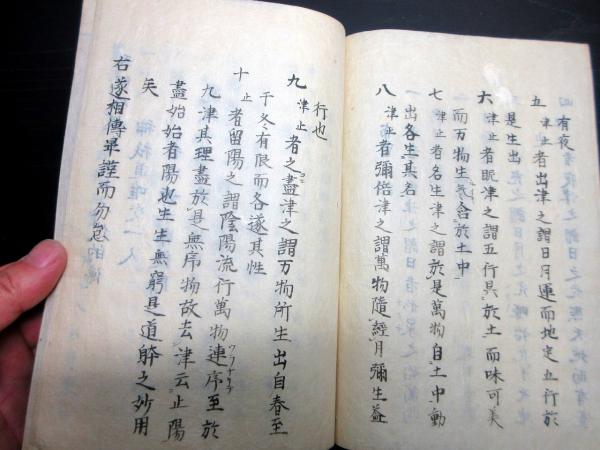 有夜
五津止者出津之謂日月運而地定五行於
是生出
六津止者眠津之謂五行具於土而味可美
而万物生氣含於土中
七津止者名生津之謂於是萬物自土中動
出各生其名
八津止者彌倍津之謂萬物隨經月彌生益
行也
九津止者之盡津之謂万物所生出自春至
于冬有限而各遂其性
十止者留陽之謂陰陽流行萬物連序至於
ツラナリテ
九津其理盡於是無序物故去津云止陽
盡始始者陽也生生無窮是道躰之妙用
矣
右遂相傳畢謹而勿忽